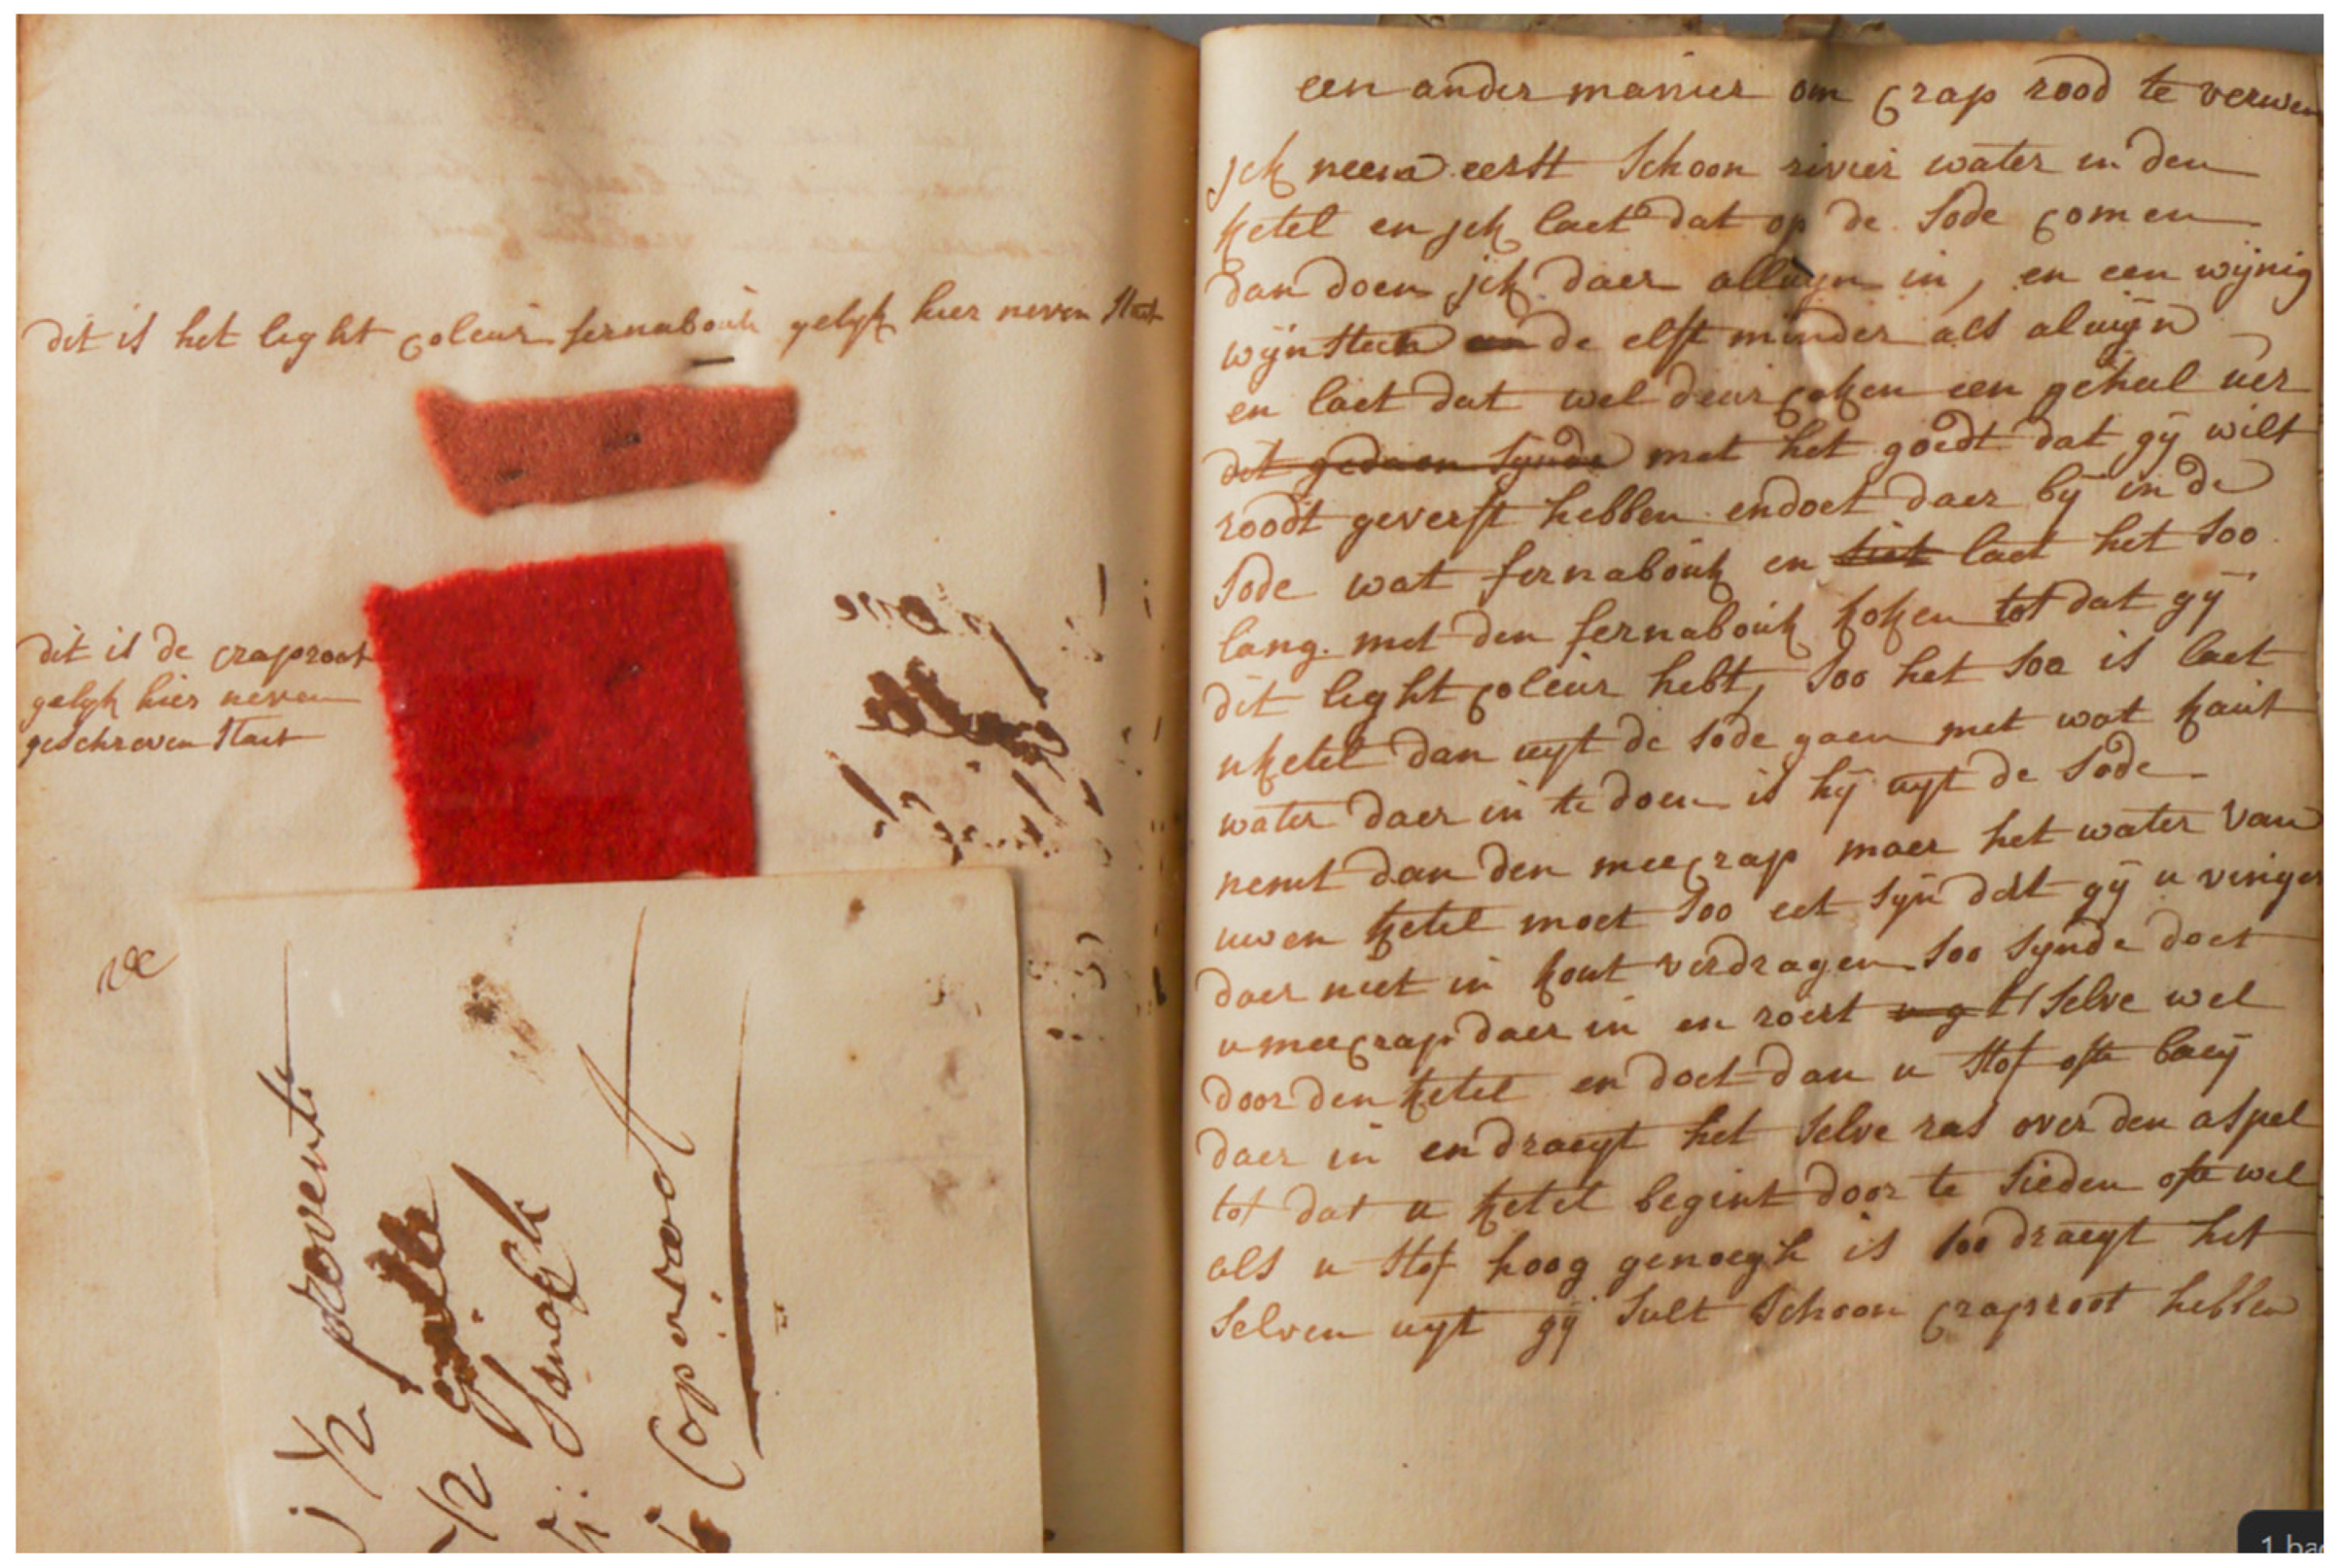 dit is het light coleur fernabouk gelyk hier neven staet
dit is de craproot
gelyk hier neven
geschreven staet
1/2 provente
1/2
Coperoodt
een ander manier om crap rood te verwen
jck neem eerst schoon rivier water in den
ketel en jck laet dat op de sode comen
dan doen jck daer alluyn in, en een wijnig
wijnsteen de elft minder als aluijn
en laet dat wel deur coken een geheel uer
dit gedaen synde met het goedt dat gij wilt
roodt geverft hebben en doet daer bij in de
sode wat fernabouk en siet laet het soo
lang met den fernabouk koken tot dat gij
dit light coleur hebt, soo het soo is laet
u ketel dan uyt de sode gaen met wat kaut
water daer in te doen is hij uyt de sode
nemt dan den meecrap maer het water van
uwen ketel moet soo eet syn dat gij u vinger
daer niet in kont verdragen soo synde doet
u meecrap daer in en roert t selve wel
door den ketel en doet dan u stof ofte baey
daer in en draeyt het selve ras over den aspel
tot dat u ketel begint door te sieden ofte wel
als u stof hoog genoegh is soo draeyt het
selven uyt gij sult schoon craproot hebben